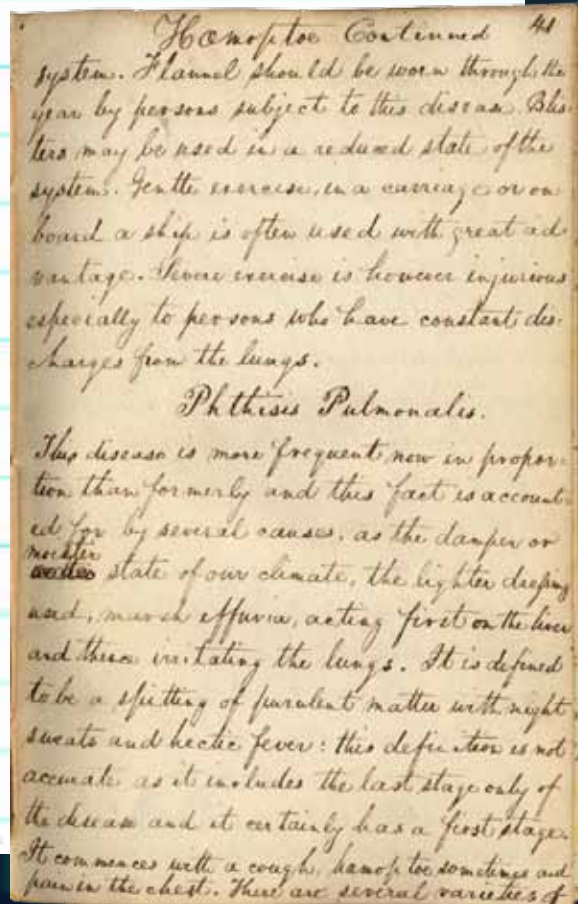 Hæmoptoe Continued 41
system. Flannel should be worn through the
year by persons subject to this disease. Blis-
ters may be used in a reduced state of the
system. Gentle exercise, in a carriage or on
board a ship is often used with great ad-
vantage. Severe exercise is however injurious
especially to persons who have constant dis-
charges from the lungs.
Phthisis Pulmonalis.
This disease is more frequent now in propor-
tion than formerly and this fact is account-
ed for by several causes, as the damper or
moister
state of our climate, the lighter dresses
used, marsh effluvia, acting first on the liver
and thence irritating the lungs. It is defined
to be a spitting of purulent matter with night
sweats and hectic fever: this definition is not
accurate as it includes the last stage only of
the disease and it certainly has a first stage.
It commences with a cough, hæmoptoe sometimes and
pain in the chest. There are several varieties of